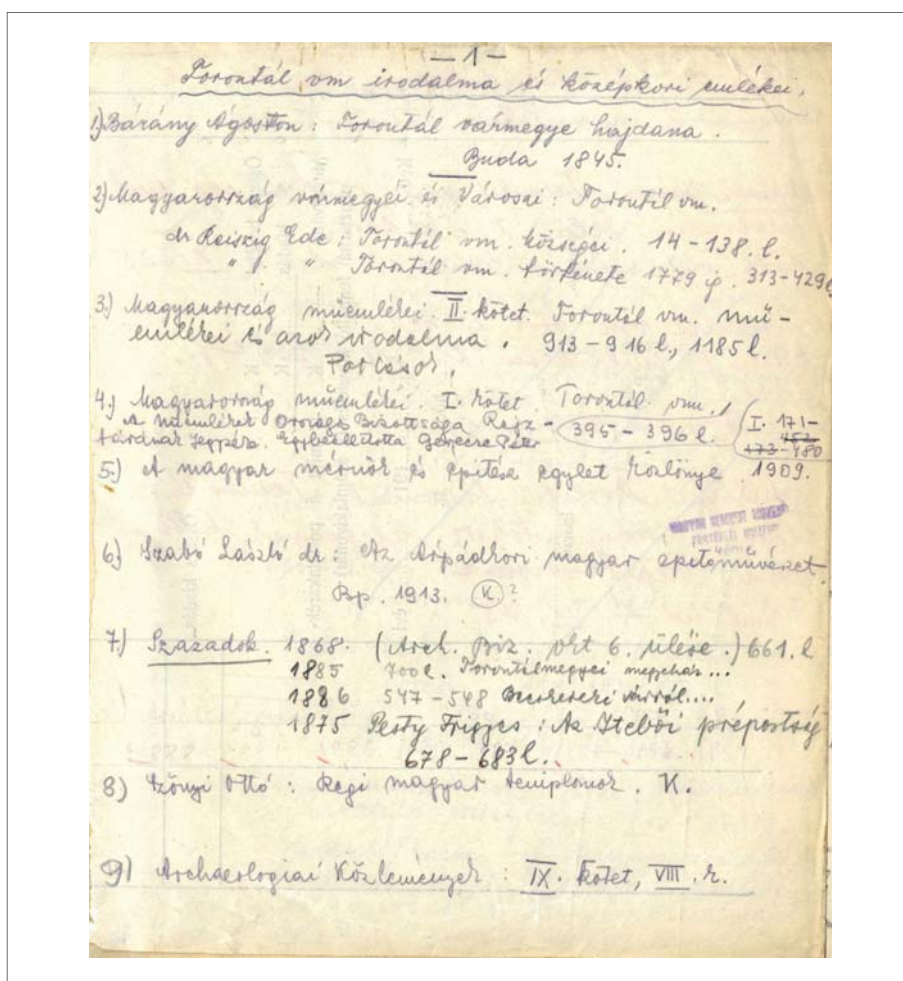 — 1 —
Torontál vm irodalma és középkori emlékei.
1) Bárány Ágoston: Torontál vármegye hajdana.
Buda 1845.
2) Magyarország vármegyéi és Városai: Torontál vm.
dr Reiszig Ede: Torontál vm. községei. 14-138. l.
" " " Torontál vm. története 1779 ig. 313-429 l
3.) Magyarország műemlékei. II. kötet. Torontál vm. mű-
emlékei és azok irodalma. 913-916 l., 1185 l.
Pótlások.
4.) Magyarország műemlékei. I. kötet. Torontál vm.
A Műemlékek Országos Bizottsága Rajz- 395-396 l. (I. 171-
tárának jegyzék. Egybeállította Gerecze Péter 173-480
5.) A magyar mérnök és építész egylet közlönye 1909.
MAGYAR NEMZETI MÚZEUM
6.) Szabó László dr: Az Árpádkori magyar építőművészet
Bp. 1913. (K.)?
7.) Századok. 1868. (Arch. Biz. okt 6. ülése.) 661. l
1885 700 l. Torontálmegyei megyeház...
1886 547-548 Becskereki várról....
1875 Pesty Frigyes: Az Ittebői prépostság
678-683 l.
8) Szőnyi Ottó: Régi magyar templomok. K.
9) Archaeologiai Közlemények: IX. kötet, VIII. r.